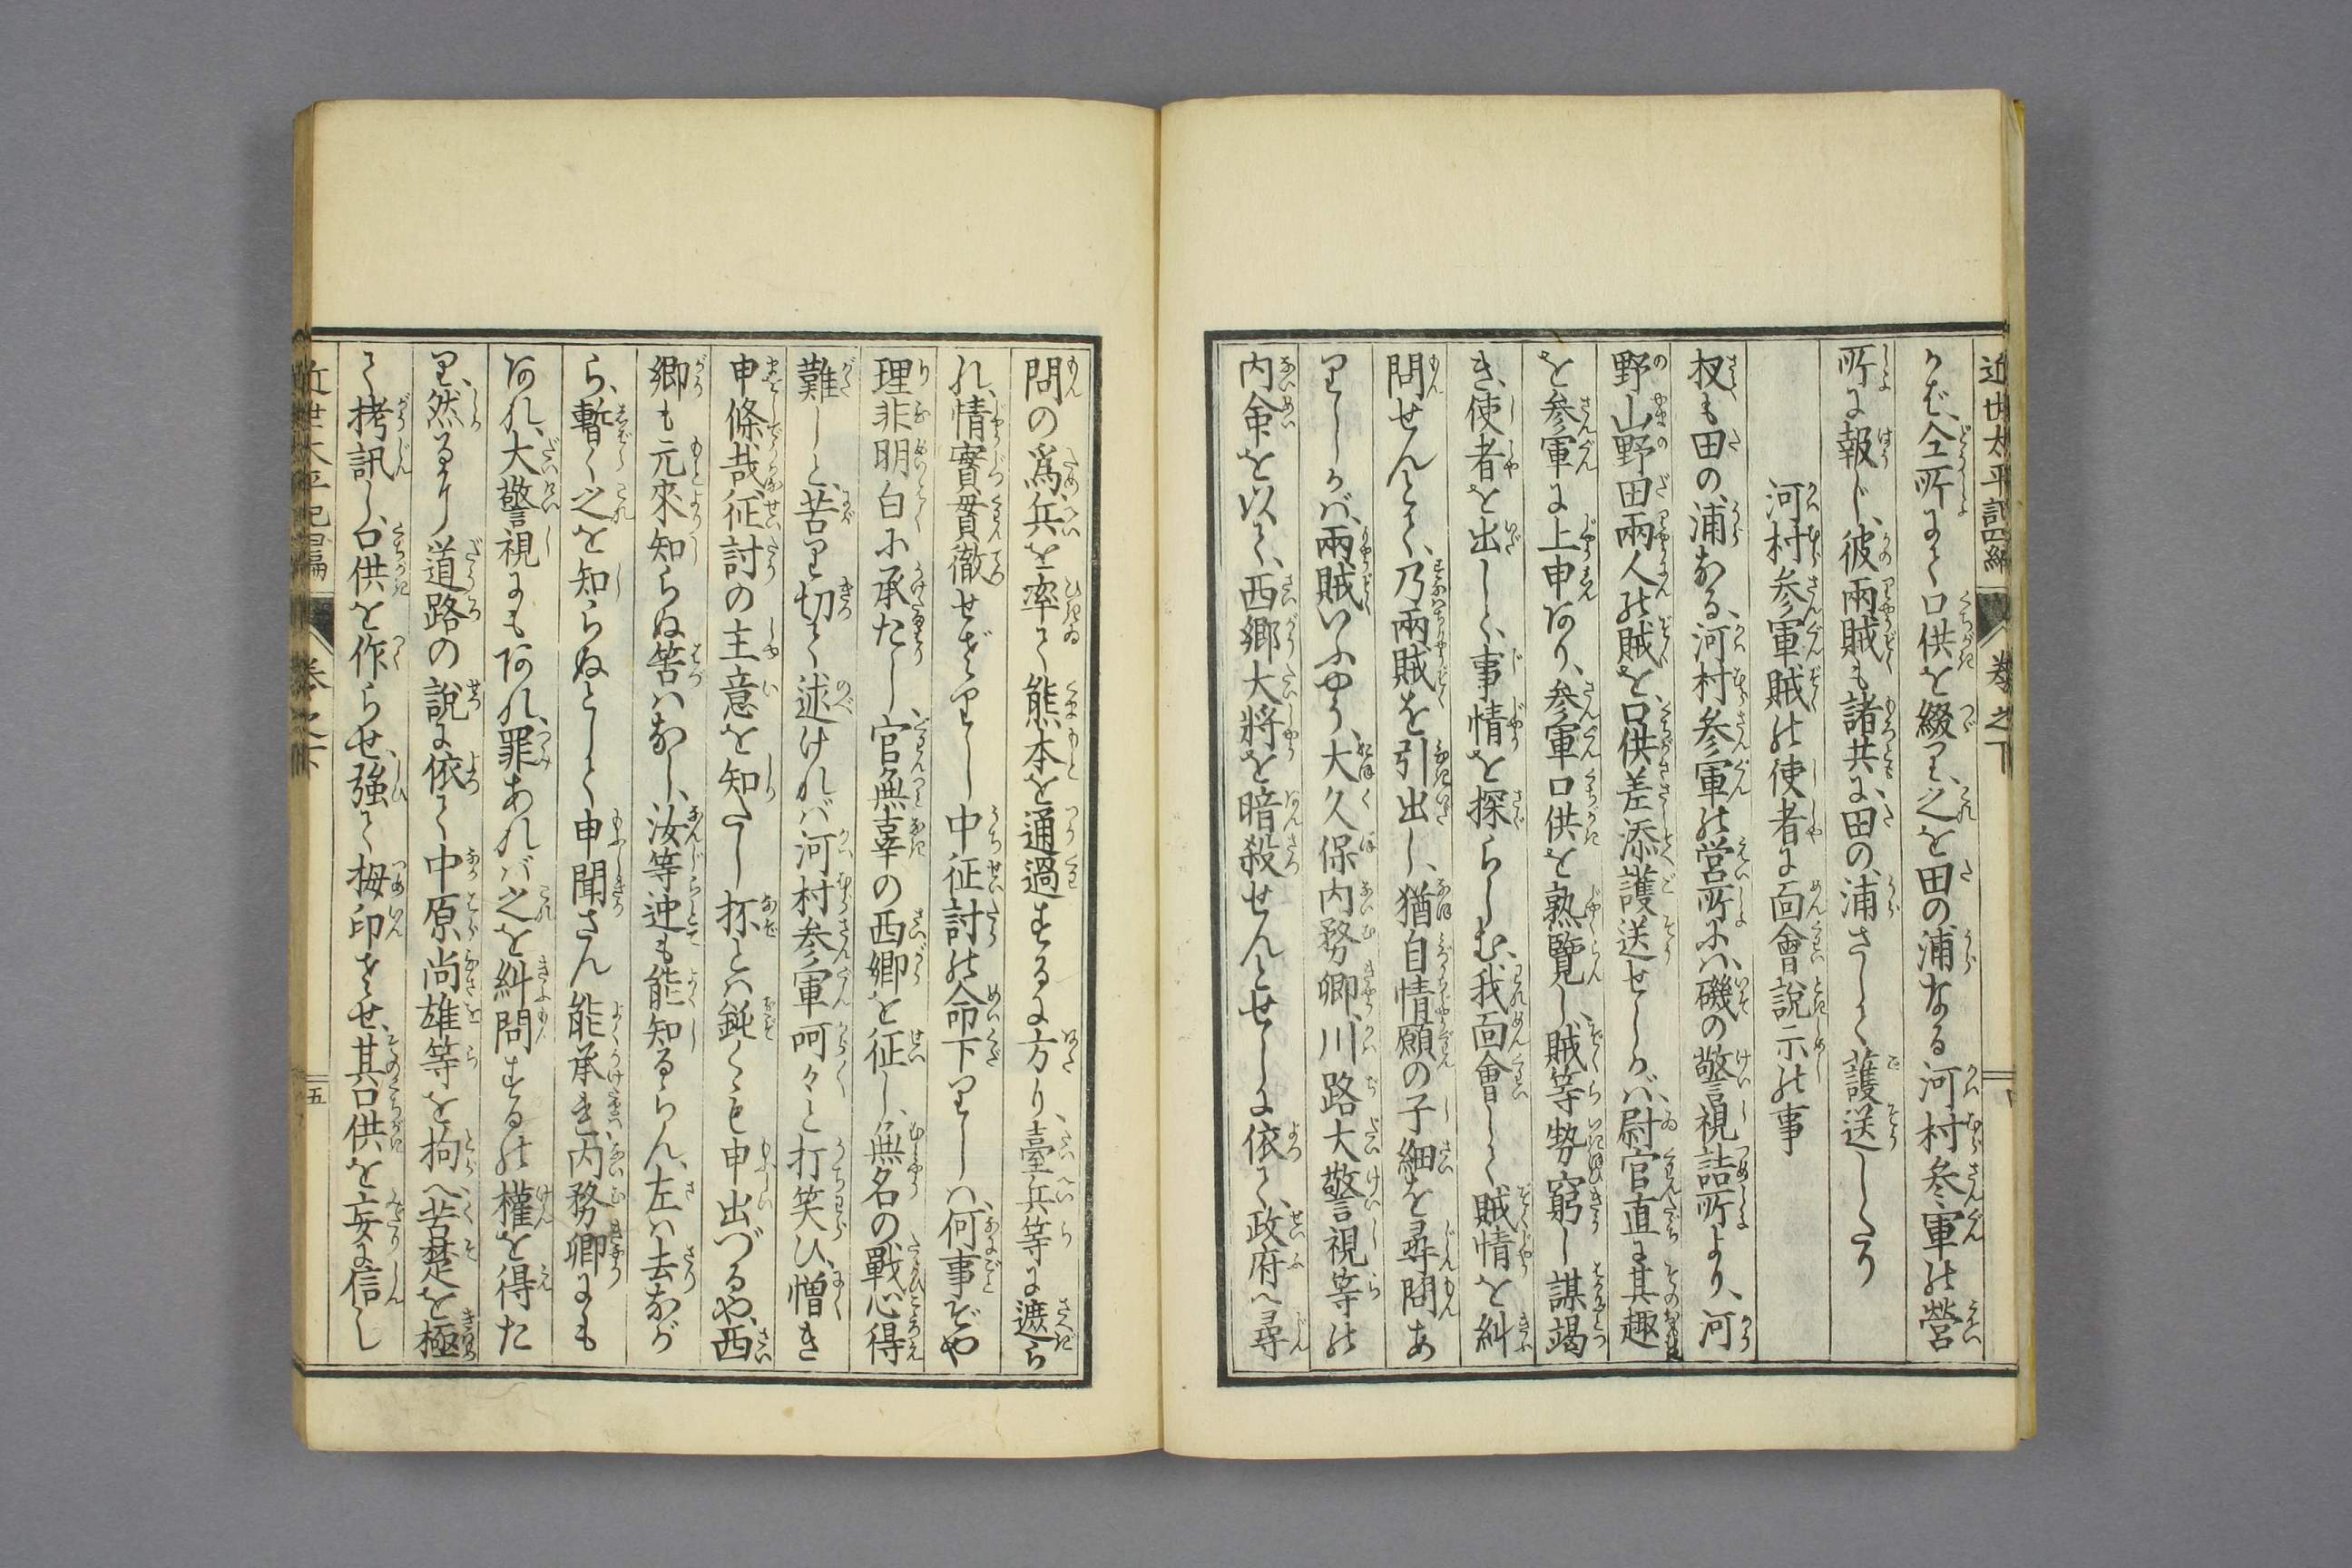 近世太平記四編 卷之下
らバ、仝所にて口供を綴り、之を田の浦なる河村参軍の營
所に報じ、彼兩賊も諸共に、田の浦さして護送したり
河村参軍賊の使者に面會説示の事
扨も田の浦なる、河村参軍の営所にハ、磯の警視詰所より、河
野山野田兩人の賊を、口供差添護送せしかバ、尉官直に其趣
を参軍に上申あり、参軍口供を熟覽し、賊等勢窮し謀竭
き、使者を出して、事情を探らしむ、我面會して賊情を糾
問せんとて、乃兩賊を引出し、猶自情願の子細を尋問あ
りしかバ、兩賊いふやう、大久保内務卿、川路大警視等の
内命を以て、西郷大將を暗殺せんとせしに依て、政府へ尋
問の爲、兵を率て熊本を通過するに方り、臺兵等に遮ら
れ、情實貫徹せざりし中征討の命下りしハ、何事ぞや
理非明白に承たし、官無辜の西郷を征し、無名の戰心得
難しと、苦り切て述けれバ河村参軍呵々と打笑ひ、憎き
申條哉征討の主意を知たし抔とハ鈍くも申出づるや、西
郷も元來知らぬ筈ハなし、汝等迚も能知るらん、左ハ去なが
ら、暫く之を知らぬとして申聞さん能承れ、内務卿にも
あれ、大警視にもあれ、罪あれバ之を糾問するの權を得た
り、然るに道路の説に依て中原尚雄等を拘へ苦楚を極
て拷訊し、口供を作らせ、強て拇印させ、其口供を妄に信し
近世太平記四編 卷之下 五